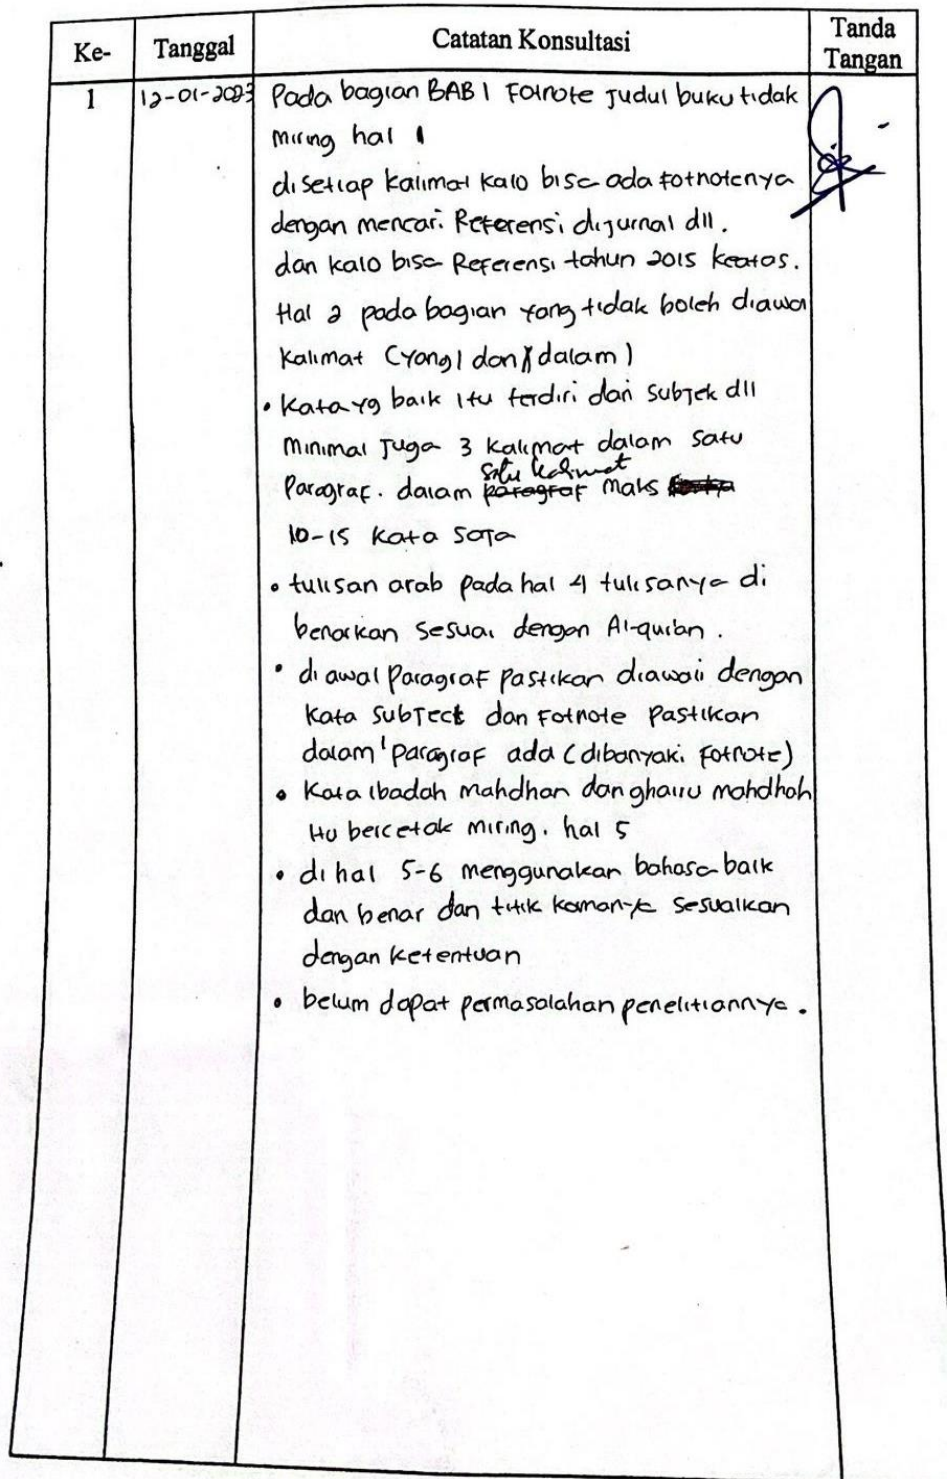 Ke- Tanggal Catatan Konsultasi Tanda Tangan
1 12-01-2023 Pada bagian BAB 1 Fotnote Judul buku tidak
miring hal 1
disetiap kalimat kalo bisa ada fotnotenya
dengan mencari Referensi dijurnal dll.
dan kalo bisa Referensi tahun 2015 keatas.
Hal 2 pada bagian yang tidak boleh diawal
kalimat (yang/dan/dalam)
• Kata yg baik itu terdiri dari subjek dll
minimal juga 3 kalimat dalam satu
satu kalimat
Paragraf. dalam paragraf maks
10-15 kata saja
• tulisan arab pada hal 4 tulisanya di
benarkan sesuai dengan Al-qur'an.
• di awal Paragraf pastikan diawali dengan
kata subject dan Fotnote Pastikan
dalam 1 paragraf ada (dibanyaki fotnote)
• Kata ibadah mahdhah dan ghairu mahdhah
itu bercetak miring. hal 5
• di hal 5-6 menggunakan bahasa baik
dan benar dan titik komanya sesuaikan
dengan ketentuan
• belum dapat permasalahan penelitiannya.